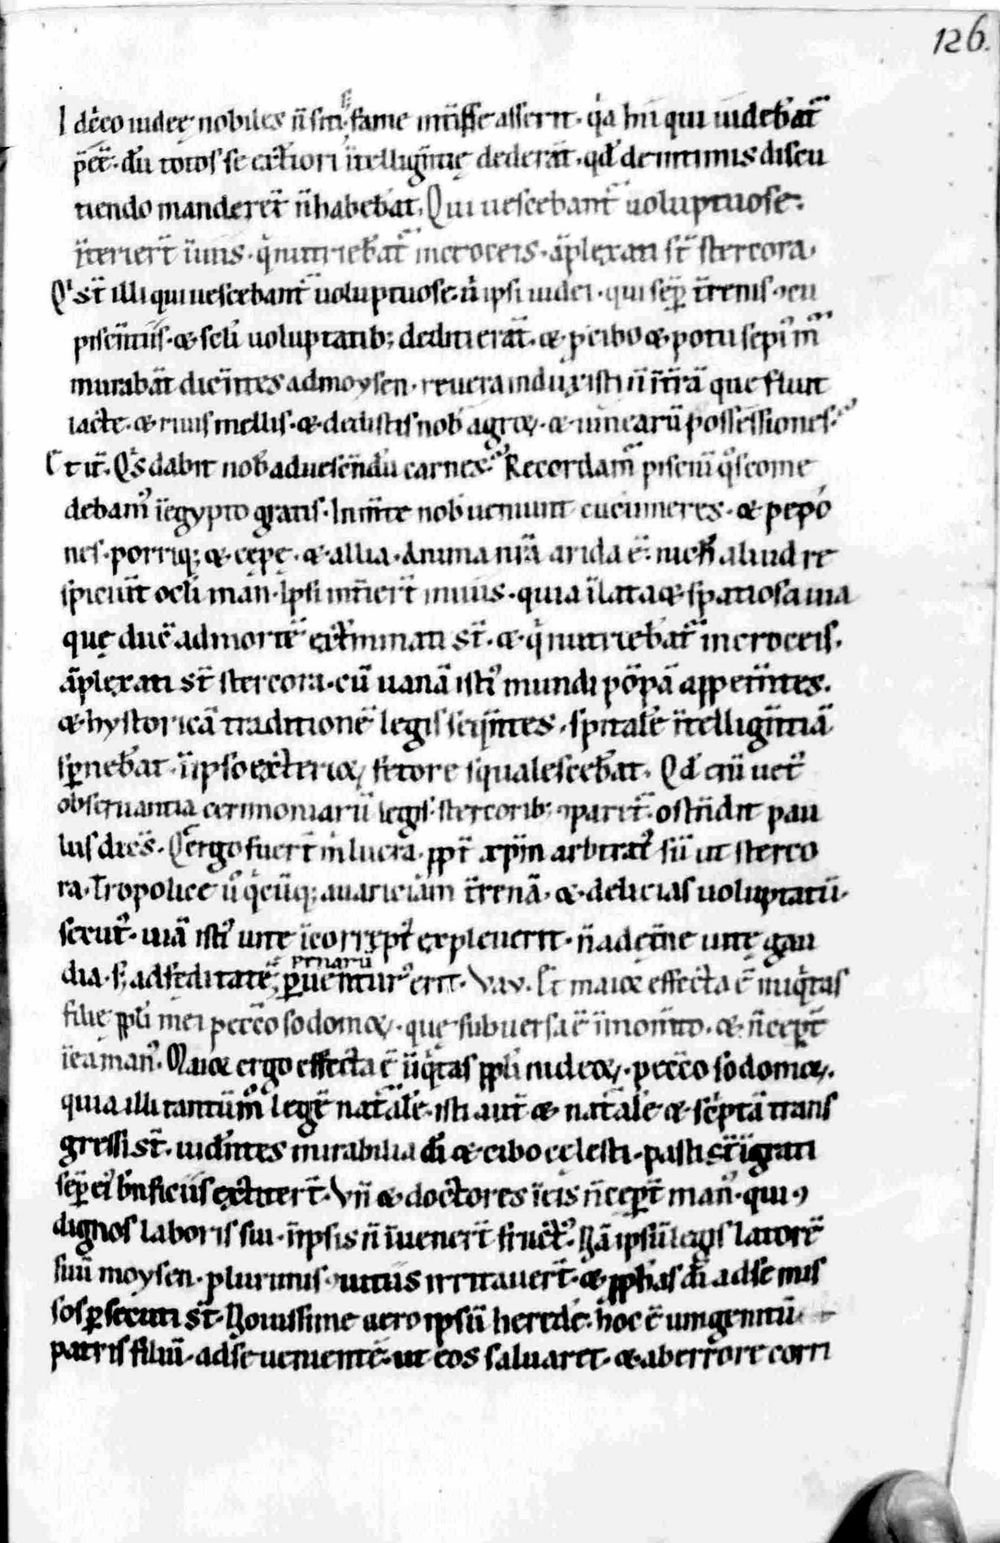 126.
Idc̄co iudeę nobiles n̄ siti. s; fame int̄isse asserit. q̇a hii qui uidebāt᷑
p̄cē. dū totos se ext̄iori īntelligītię dederāt. qd̄ de intimis discu
tiendo manderēt n̄ habebāt. Qui uescebant᷑ uoluptuose.
īnteriert̄ ī uiis. q̇ nutriebāt᷑ in croceis. āplexati st̄ stercora.
Qⁱ st̄ illi qui uescebant᷑ uoluptuose. n̄ ipsi iudei. qui sēp t̄renis ꝯcu
piscētiis. & scl̄i uoluptatib; dediti erāt. & p cibo & potu sepiꝰ m᷑
murabāt dicētes ad moysen. reuera induxisti n̄ ī t̄rā que fluit
lacte. & riuis mellis. & dedistis nob̄ agroꝝ. & uinearū possessiones.
Et it̄. Qⁱs dabit nob̄ ad uescēdū carnes. Recordam᷑ pisciū q̊s come
debamꝰ ī egypto gratis. In m̄te nob̄ ueniunt cucumeres. & pepo
nes. porriq; & cępę. & allia. Anima n̄ra arida ē. nich̄ aliud re
spiciūt ocl̄i man̄. Ipsi int̄iert̄ in uiis. quia ī lata & spatiosa uia
quę duc̄ ad mortē ext̄minati st̄. & q̇ nutriebāt᷑ in croceis.
āplexati st̄ stercora. cū uanā istiꝰ mundi pōpā appetītes.
& hystoricā traditionē legis seqūtes. sp̄italē īntelligītiā
sp̄nebāt. ī ipso ext̄erioꝝ fetore squalescebāt. Qd̄ enī uet᷑
obseruantia cerimoniarū legis stercorib; ꝯparet᷑. ostēdit pau
lus dic̄s. Q̄ ergo fuer̄t m̄ lucra. ppt̄ xp̄m arbitratꝰ sū ut sterco
ra. Tropolice ū q̇cūq; auariciam t̄renā. & delicias uoluptatū
secut᷑. uiā istiꝰ uite ī eo rꝯpt᷑ expleuerit. n̄ ad et̄ne uitę gau
dia. s; ad feditatē penarū peruenturꝰ erit. Vav. Et maioꝛ effecta ē iniq̇tas
filię ppl̄i mei pecc̄o sodomoꝝ. quę subuersa ē ī mom̄to. & n̄ cep̄t
ī ea manꝰ. Maioꝛ ergo effecta ē īiq̇tas ppl̄i iudeoꝝ. pecc̄o sodomoꝝ.
quia illi tantūm̊ legē nat᷑alē. isti aut̄ & nat᷑alē & scptā trans
gressi st̄. uidētes mirabilia dī & cibo cęlesti pasti st̄ īgrati
sēp eiꝰ bn̄ficiis extiter̄t. Vn̄ & doctores ī eis n̄ cep̄t manꝰ. qui ꝯ
dignos laboris sui. ī ipsis n̄ īuener̄t fructꝰ. Nā ipsū legis latorē
suū moysen. plurimis ꝯuitiis irritauer̄t. & pph̄as dī ad se mis
sos p̄secuti st̄. Nouissime uero ipsū heredē. hoc ē unigenitū
patris filiū. ad se uenientē. ut eos saluaret. & ab errore corri